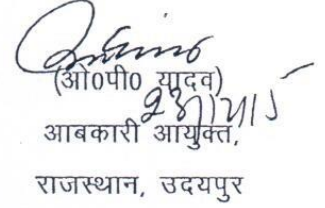 (ओ0पी0 यादव)
आबकारी आयुक्त,
राजस्थान, उदयपुर